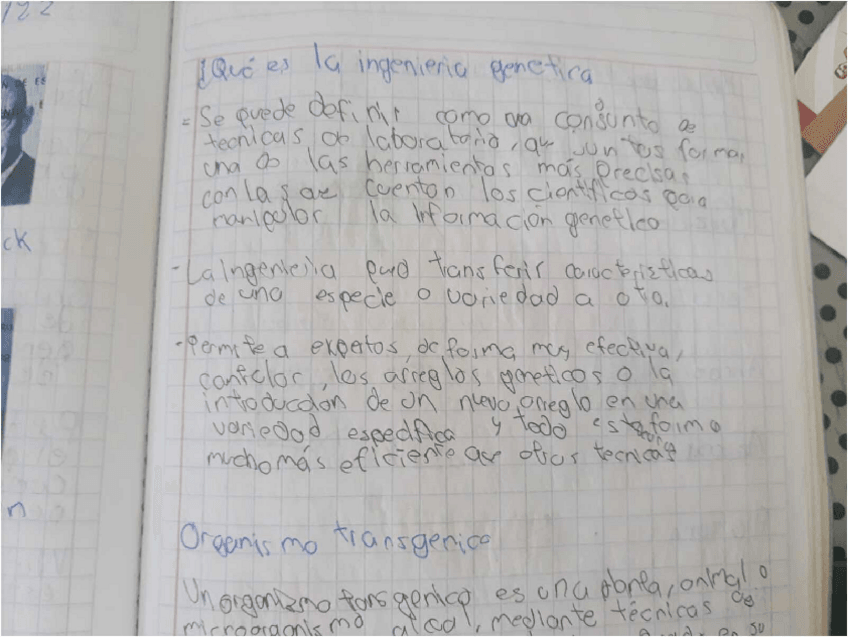 122
ck
n
¿Qué es la ingenieria genetica
- Se puede definir como un conjunto de
tecnicas de laboratorio, que juntos forman
una de las herramientas más precisas
con las que cuentan los científicos para
manipular la información genetico
- La Ingenieria pued transferir caracteristicas
de una especie o variedad a otra.
- Permite a expertos, de forma muy efectiva,
los arreglos geneticos o la
introduccion de un nuevo arreglo en una
variedad especifica y todo esto forma
mucho más eficiente que otras tecnicas
Organismo transgenico
Un organizmo transgenico es una planta, animal o
microorganismo al cual, mediante técnicas de